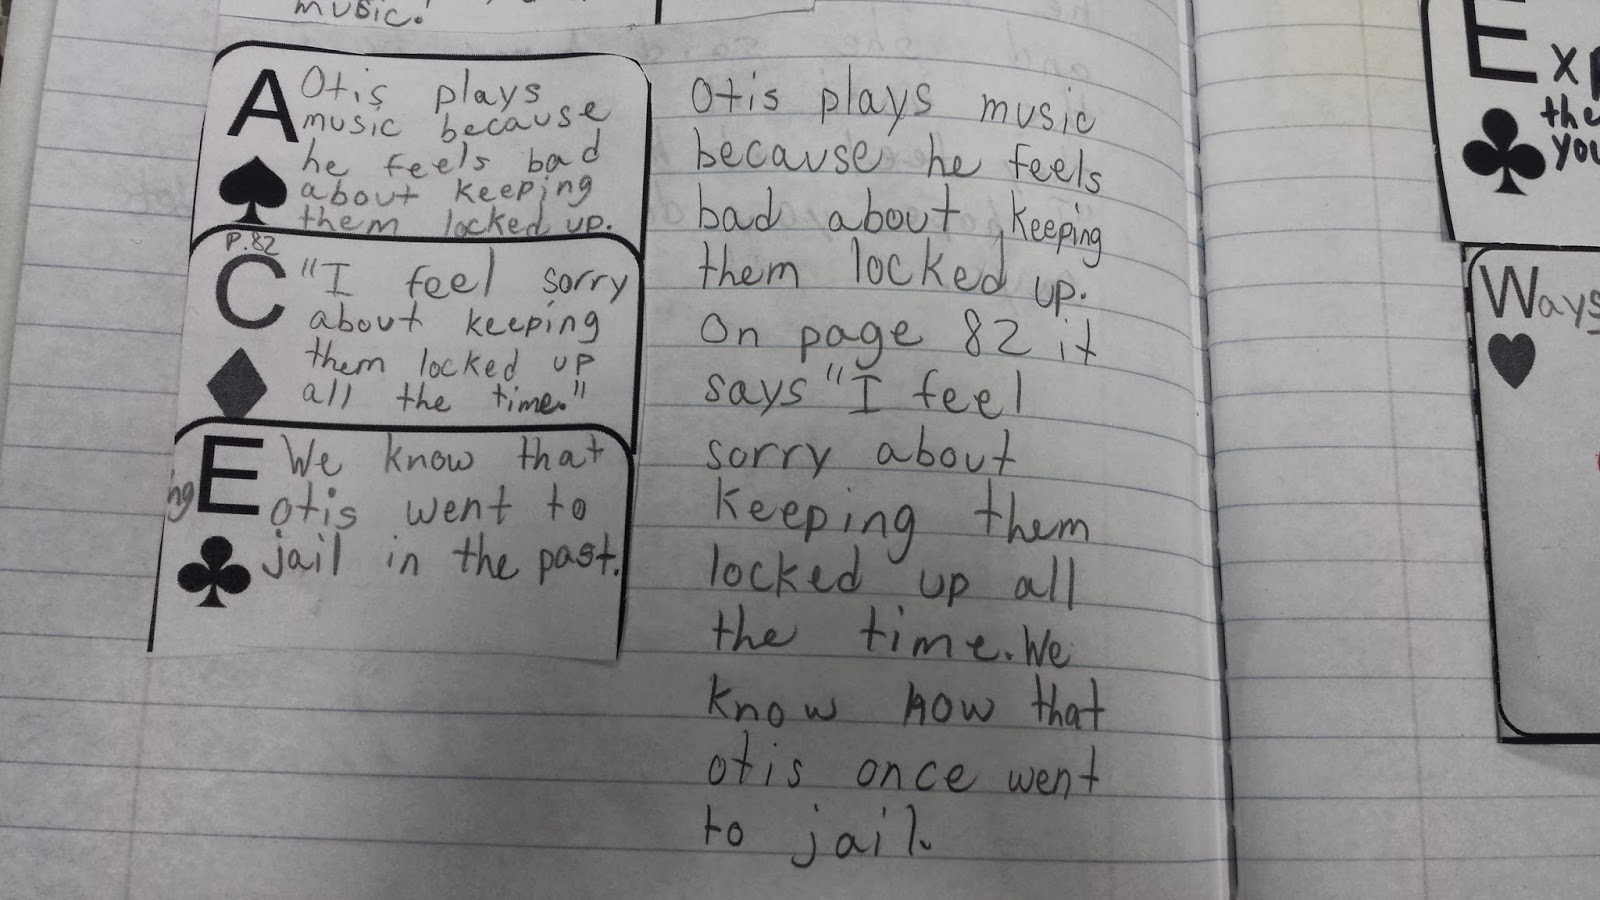 music!
A Otis plays
music because
he feels bad
about keeping
them locked up.
P.82
C "I feel sorry
about keeping
them locked up
all the time."
E We know that
otis went to
jail in the past.
Otis plays music
because he feels
bad about keeping
them locked up.
On page 82 it
says "I feel
sorry about
keeping them
locked up all
the time. We
know now that
otis once went
to jail.
Exp
the
you
Ways